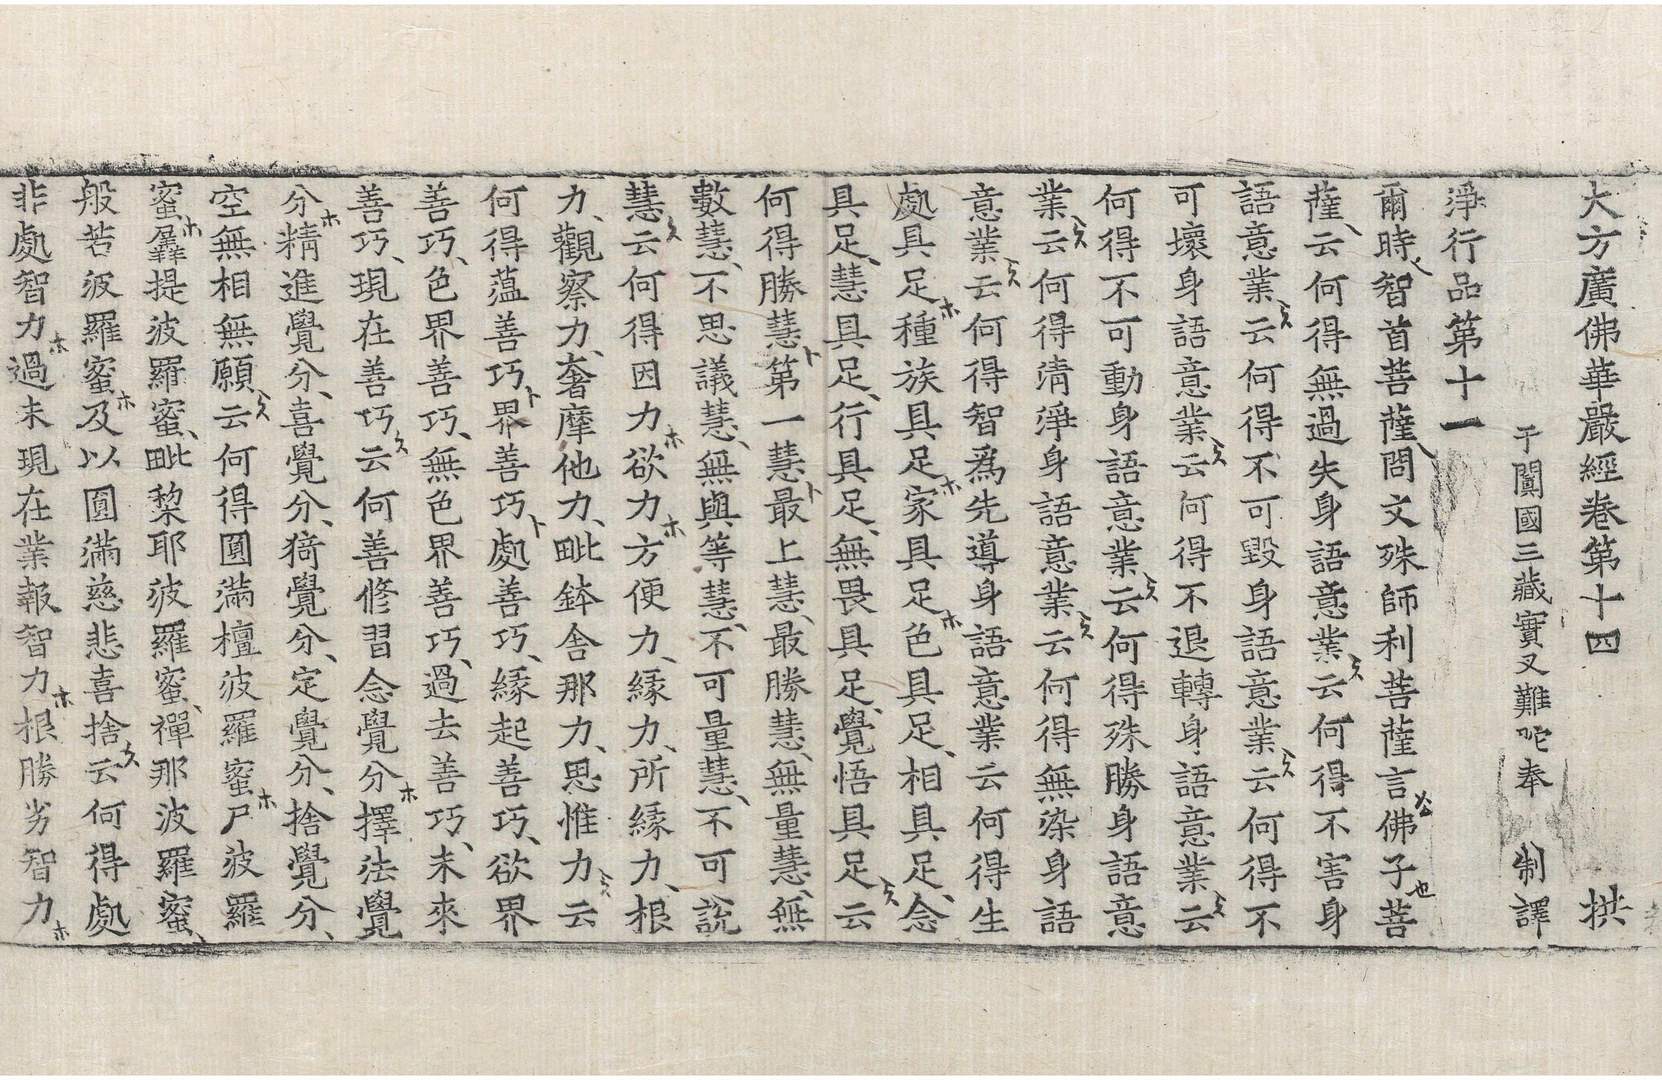 大方廣佛華嚴經卷第十四 拱
于闐國三藏實叉難陀奉 制譯
淨行品第十一
爾時智首菩薩問文殊師利菩薩言佛子菩
薩云何得無過失身語意業云何得不害身
語意業云何得不可毀身語意業云何得不
可壞身語意業云何得不退轉身語意業云
何得不可動身語意業云何得殊勝身語意
業云何得清淨身語意業云何得無染身語
意業云何得智爲先導身語意業云何得生
處具足種族具足家具足色具足相具足念
具足慧具足行具足無畏具足覺悟具足云
何得勝慧第一慧最上慧最勝慧無量慧無
數慧不思議慧無與等慧不可量慧不可說
慧云何得因力欲力方便力緣力所緣力根
力觀察力奢摩他力毗鉢舍那力思惟力云
何得蘊善巧界善巧處善巧緣起善巧欲界
善巧色界善巧無色界善巧過去善巧未來
善巧現在善巧云何善修習念覺分擇法覺
分精進覺分喜覺分猗覺分定覺分捨覺分
空無相無願云何得圓滿檀波羅蜜尸波羅
蜜羼提波羅蜜毗棃耶波羅蜜禪那波羅蜜
般若波羅蜜及以圓滿慈悲喜捨云何得處
非處智力過未現在業報智力根勝劣智力